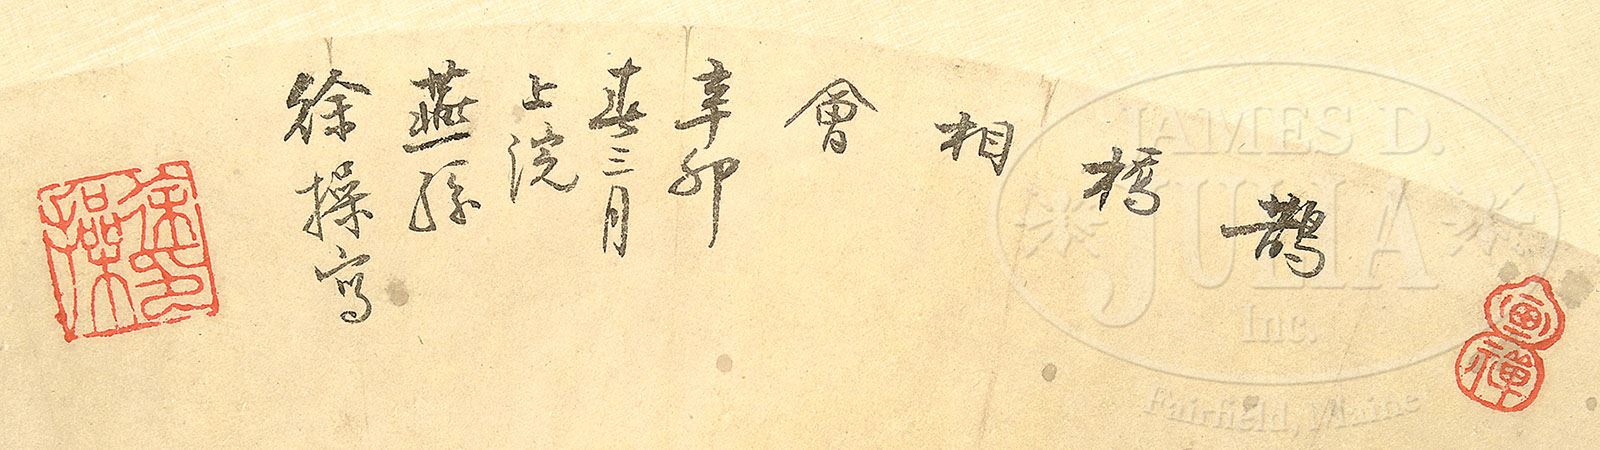 鵲
橋
相
會
辛卯
春三月
上浣
燕孫
徐操寫
畫禪
徐操印
JAMES D.
JULIA
Inc.
Fairfield, Maine